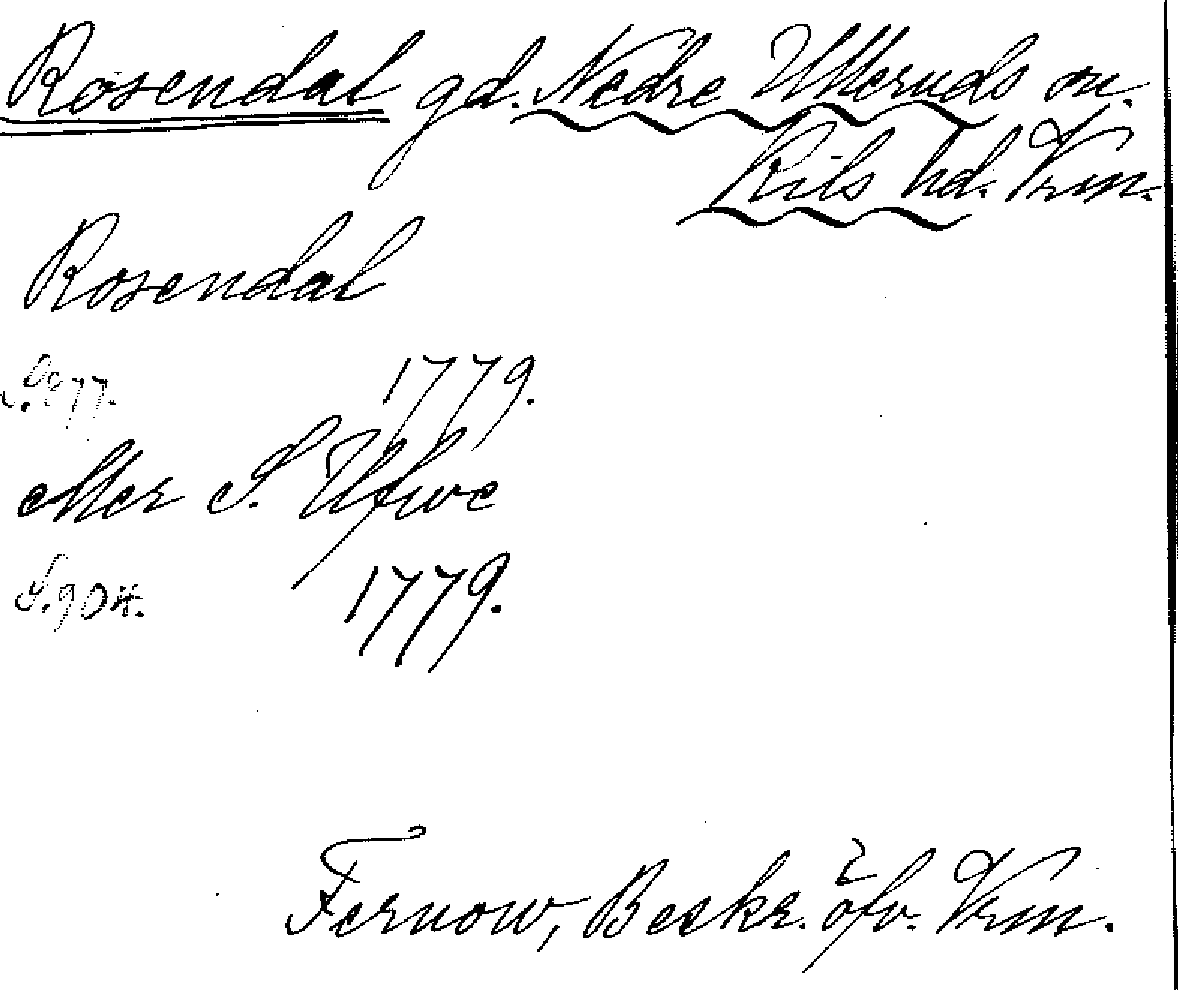 Rosendal gd. Nedre Ulleruds sn.
Kils hd. Vrm.
Rosendal
1779.
eller S. Ufwe
S. 904. 1779.
Fernow, Beskr. öfv. Vrm.